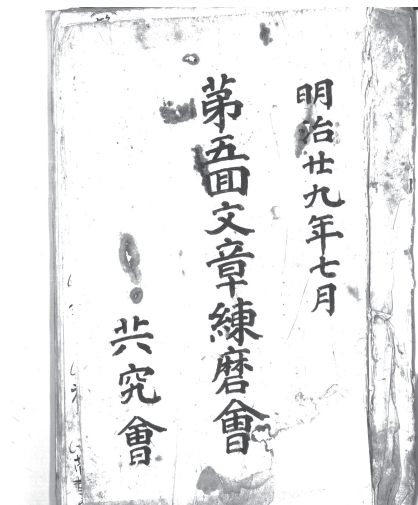 明治廿九年七月
第五回文章練磨會
共究會